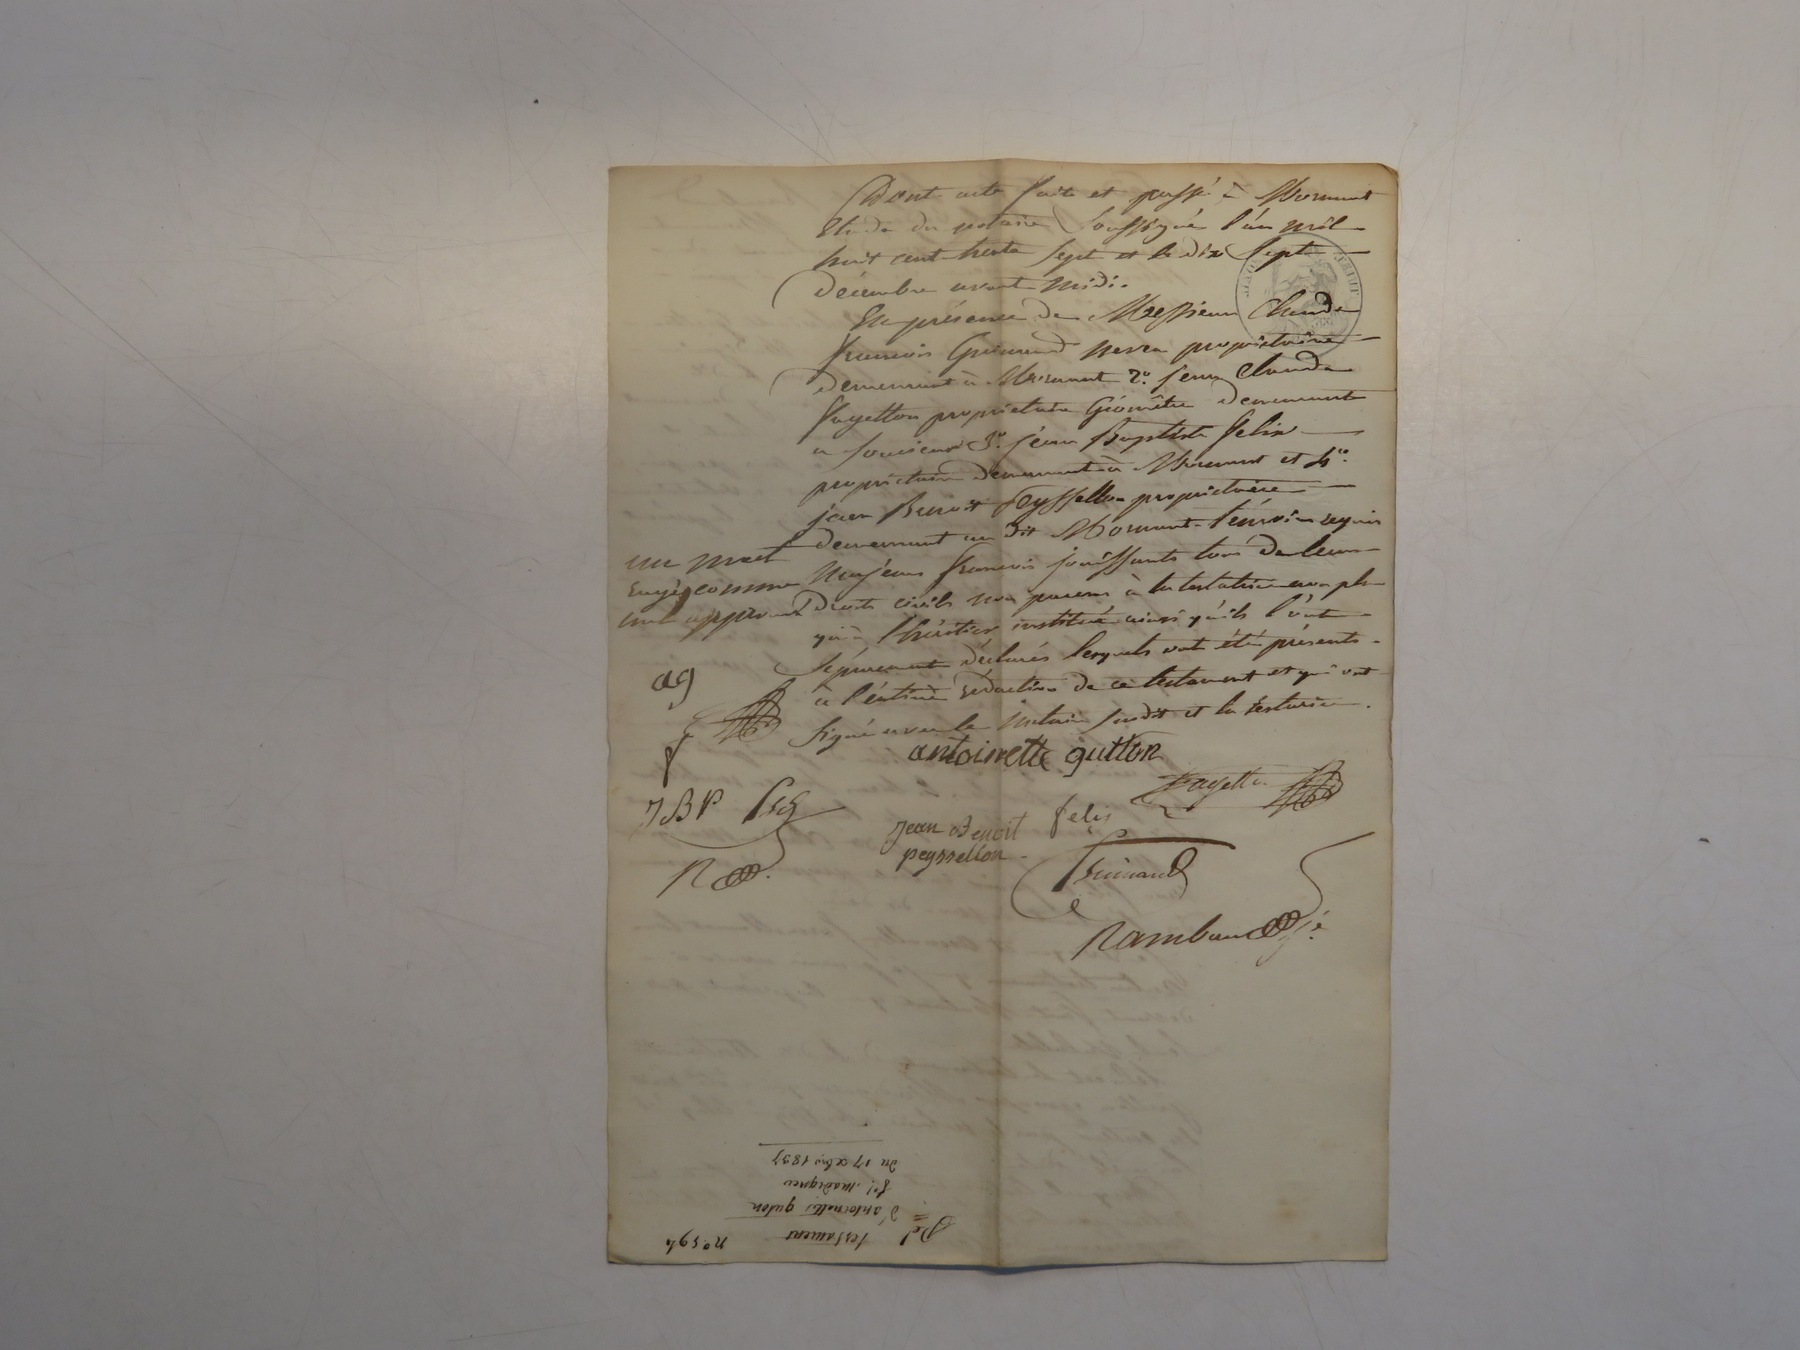 Dont acte fait et passé à Mornant
Etude du notaire soussigné l'an mil
huit cent trente sept et le dix sept
décembre avant midi.
En présence de Messieurs Claude
françois Guinand neveu propriétaire
demeurant à Mornant 2.º jean Claude
fayetton propriétaire Géomètre demeurant
a 3.º jean Baptiste felix
propriétaire demeurant à Mornant et 4.º
jean Benoit Peyssellon propriétaire
demeurant au dit Mornant témoins requis
majeurs français jouissants tous de leurs
droits civils non parens à la testatrice non plus
qu'à l'héritier institué ainsi qu'ils l'ont
séparement déclarés lesquels ont été présents
à l'entière rédaction de ce testament et qui ont
signé avec le notaire susdit et la testatrice.
un mot
rayé comme
nul approuvé
ag
f
JBP
R
antoinette gutton
fayetton
jean Benoit felix
peyssellon
Guinand
Rambaud
nº 594
testament
d'antoinette guton
du 17 xbre 1837